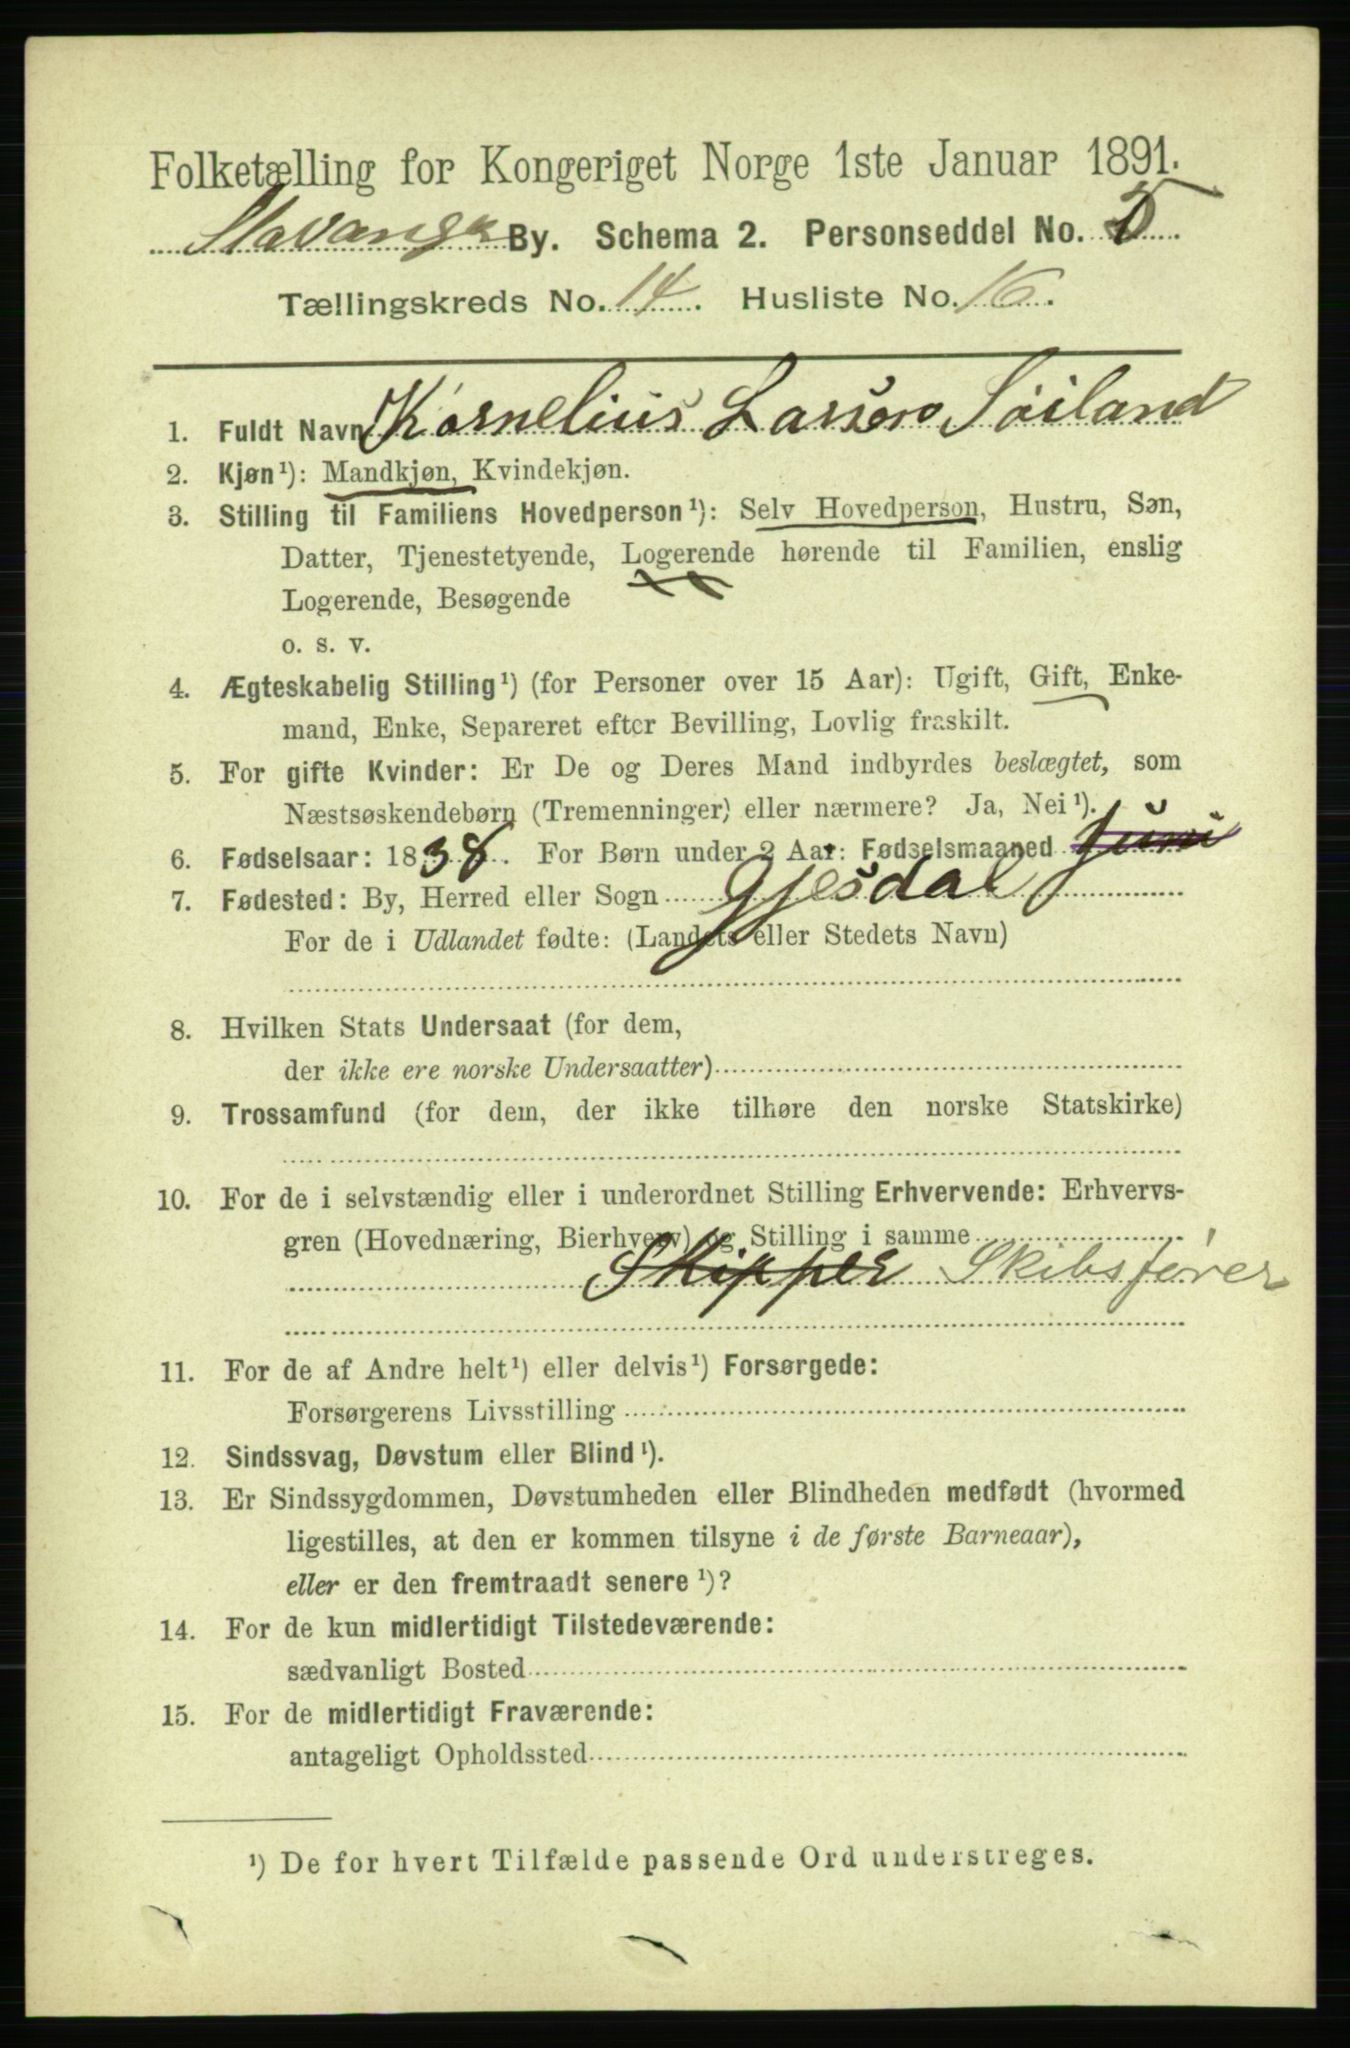 Folketælling for Kongeriget Norge 1ste Januar 1891.
Stavanger By. Schema 2. Personseddel No. 5
Tællingskreds No. 14. Husliste No. 16.
1. Fuldt Navn Kornelius Larsen Söiland
2. Kjøn¹): Mandkjøn, Kvindekjøn.
3. Stilling til Familiens Hovedperson¹): Selv Hovedperson, Hustru, Søn,
Datter, Tjenestetyende, Logerende hørende til Familien, enslig
Logerende, Besøgende
o. s. v.
4. Ægteskabelig Stilling¹) (for Personer over 15 Aar): Ugift, Gift, Enke-
mand, Enke, Separeret efter Bevilling, Lovlig fraskilt.
5. For gifte Kvinder: Er De og Deres Mand indbyrdes beslægtet, som
Næstsøskendebørn (Tremenninger) eller nærmere? Ja, Nei¹).
6. Fødselsaar: 1838. For Børn under 2 Aar: Fødselsmaaned Juni
7. Fødested: By, Herred eller Sogn Gjesdal
For de i Udlandet fødte: (Landets eller Stedets Navn)
8. Hvilken Stats Undersaat (for dem,
der ikke ere norske Undersaatter)
9. Trossamfund (for dem, der ikke tilhøre den norske Statskirke)
10. For de i selvstændig eller i underordnet Stilling Erhvervende: Erhvervs-
gren (Hovednæring, Bierhverv) og Stilling i samme
Skipper Skibsfører
11. For de af Andre helt¹) eller delvis¹) Forsørgede:
Forsørgerens Livsstilling
12. Sindssvag, Døvstum eller Blind¹).
13. Er Sindssygdommen, Døvstumheden eller Blindheden medfødt (hvormed
ligestilles, at den er kommen tilsyne i de første Barneaar),
eller er den fremtraadt senere¹)?
14. For de kun midlertidigt Tilstedeværende:
sædvanligt Bosted
15. For de midlertidigt Fraværende:
antageligt Opholdssted
¹) De for hvert Tilfælde passende Ord understreges.